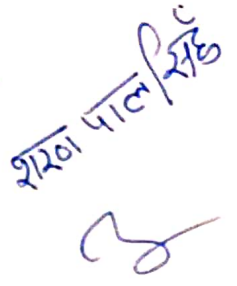 शरण पाल सिंह